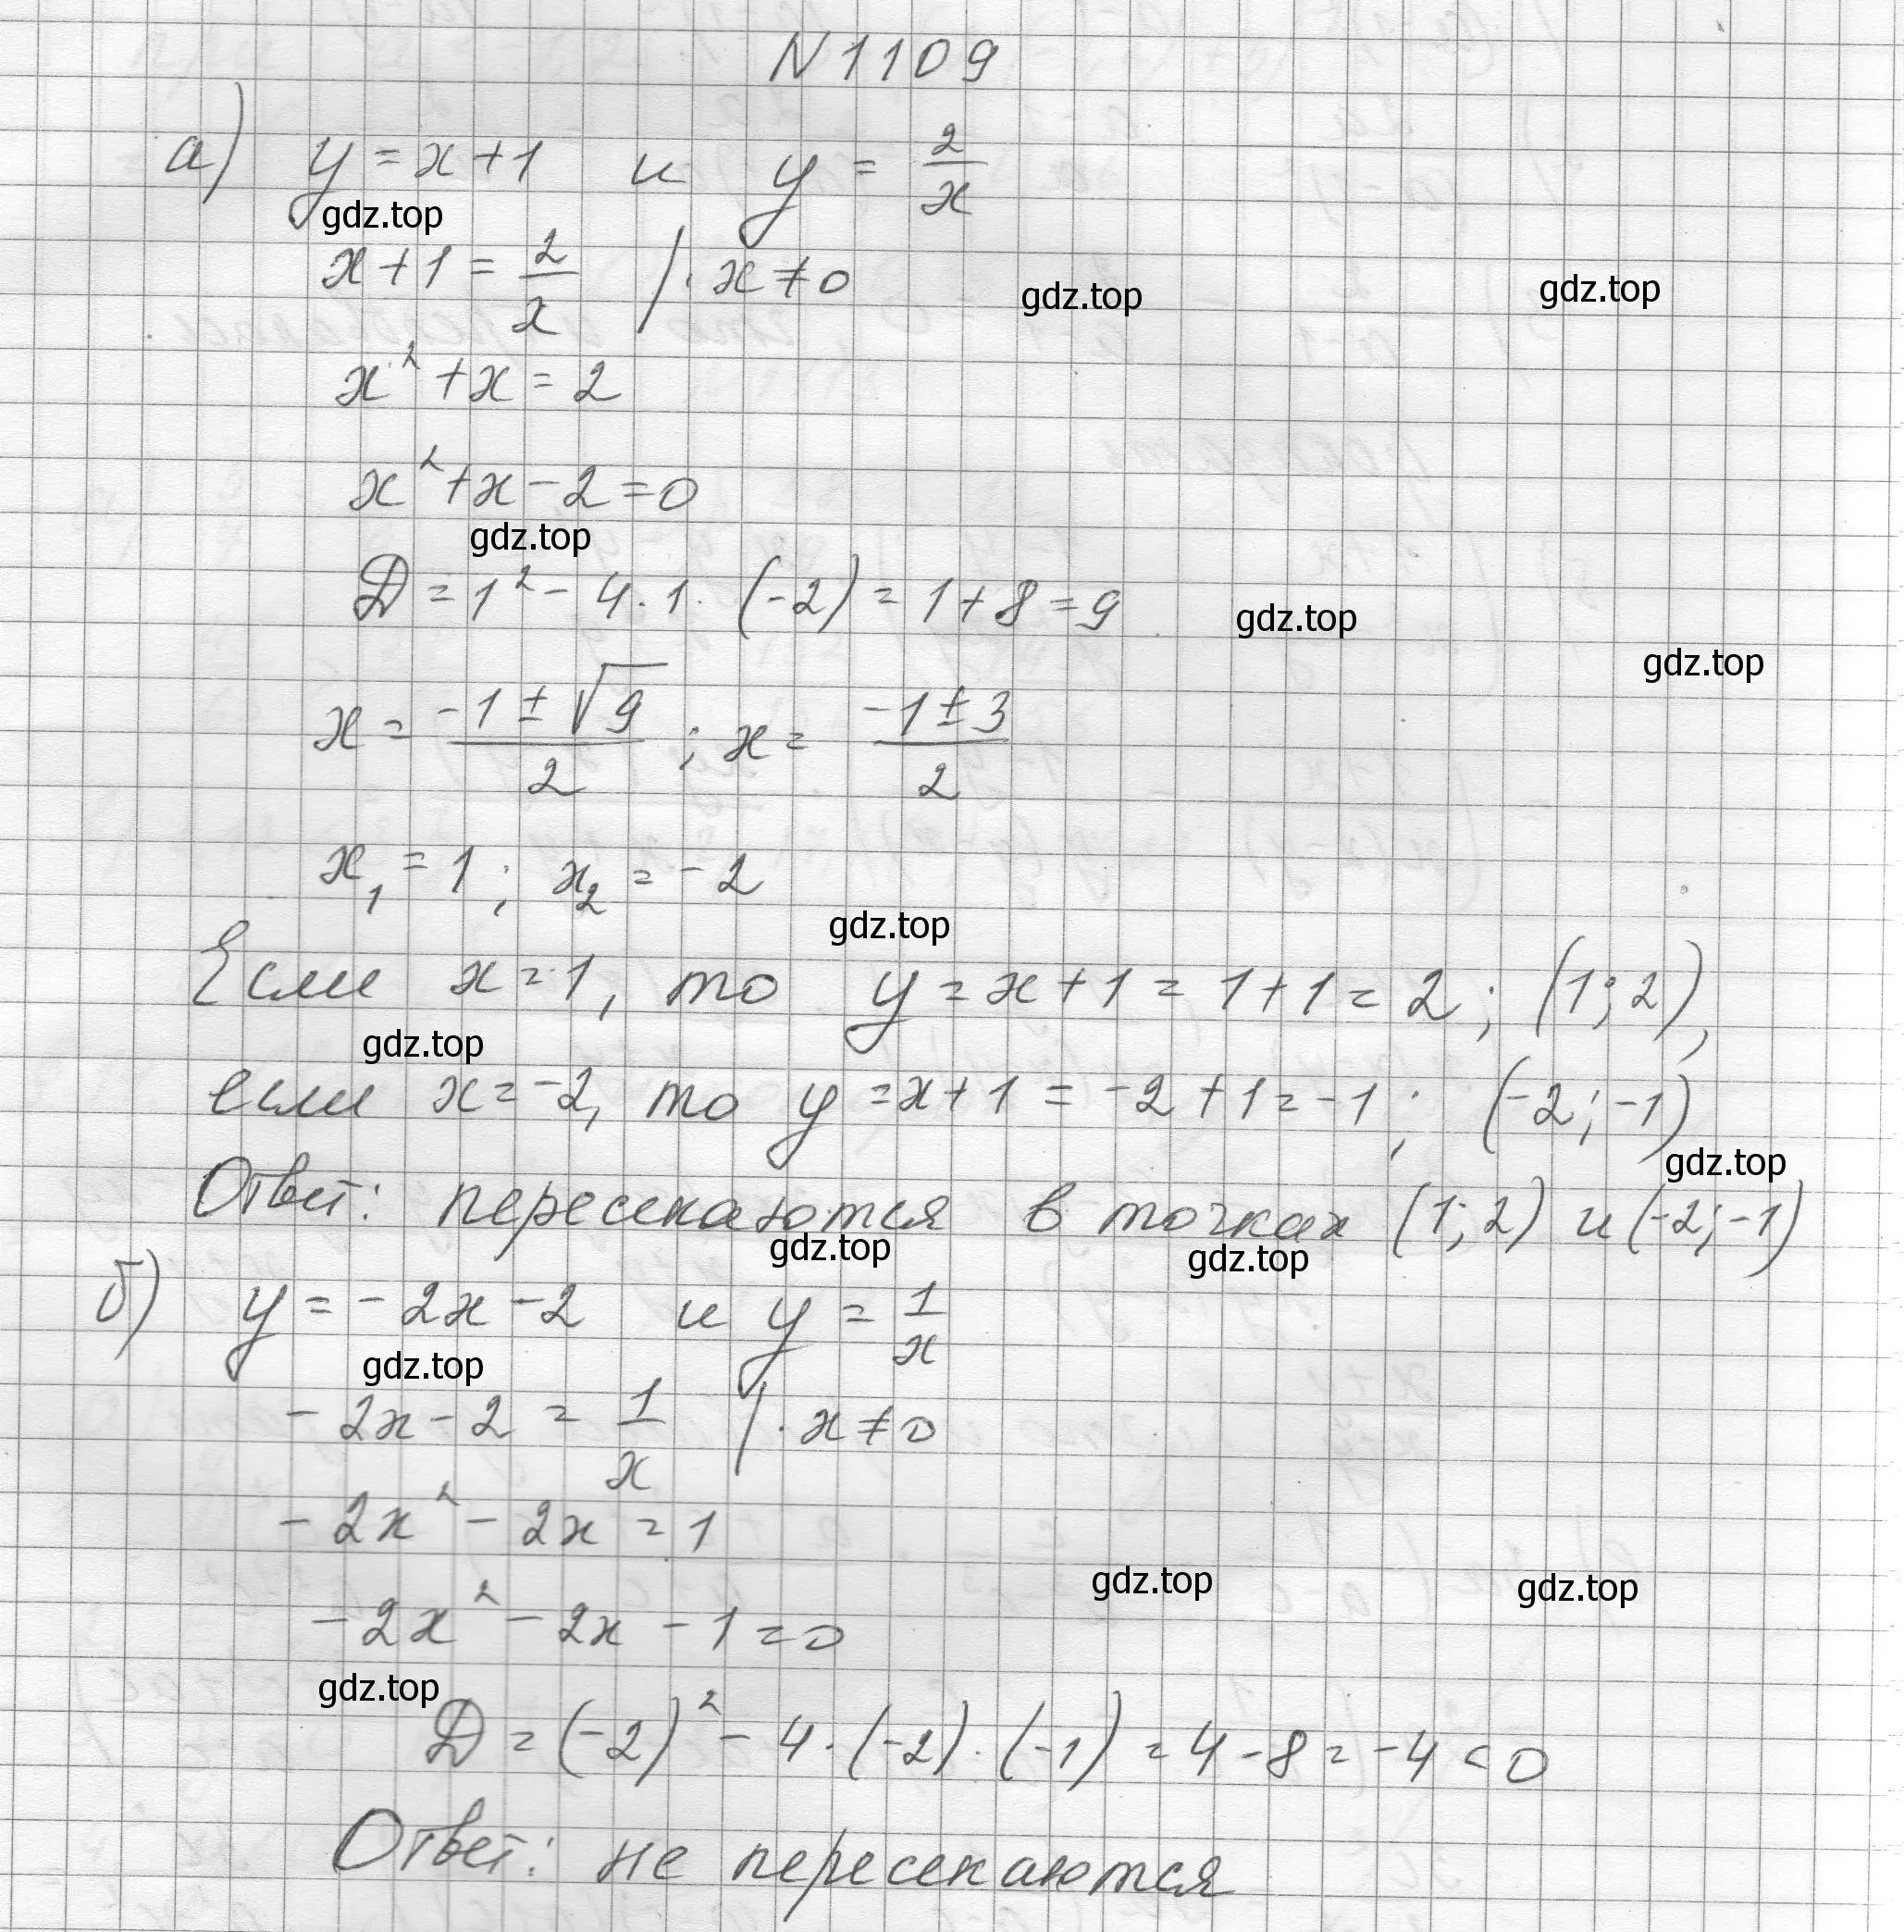 N 1109
а) y = x + 1 и y = 2/x
gdz.top
x + 1 = 2/x | · x ≠ 0
gdz.top gdz.top
x² + x = 2
x² + x - 2 = 0
gdz.top
D = 1² - 4 · 1 · (-2) = 1 + 8 = 9
gdz.top
gdz.top
x = (-1 ± √9)/2 ; x = (-1 ± 3)/2
x₁ = 1 ; x₂ = -2
gdz.top
Если x = 1, то y = x + 1 = 1 + 1 = 2 ; (1; 2),
gdz.top
если x = -2, то y = x + 1 = -2 + 1 = -1 ; (-2; -1)
gdz.top
Ответ: пересекаются в точках (1; 2) и (-2; -1)
gdz.top gdz.top
б) y = -2x - 2 и y = 1/x
gdz.top
-2x - 2 = 1/x | · x ≠ 0
-2x² - 2x = 1
gdz.top gdz.top
-2x² - 2x - 1 = 0
gdz.top
D = (-2)² - 4 · (-2) · (-1) = 4 - 8 = -4 < 0
Ответ: не пересекаются